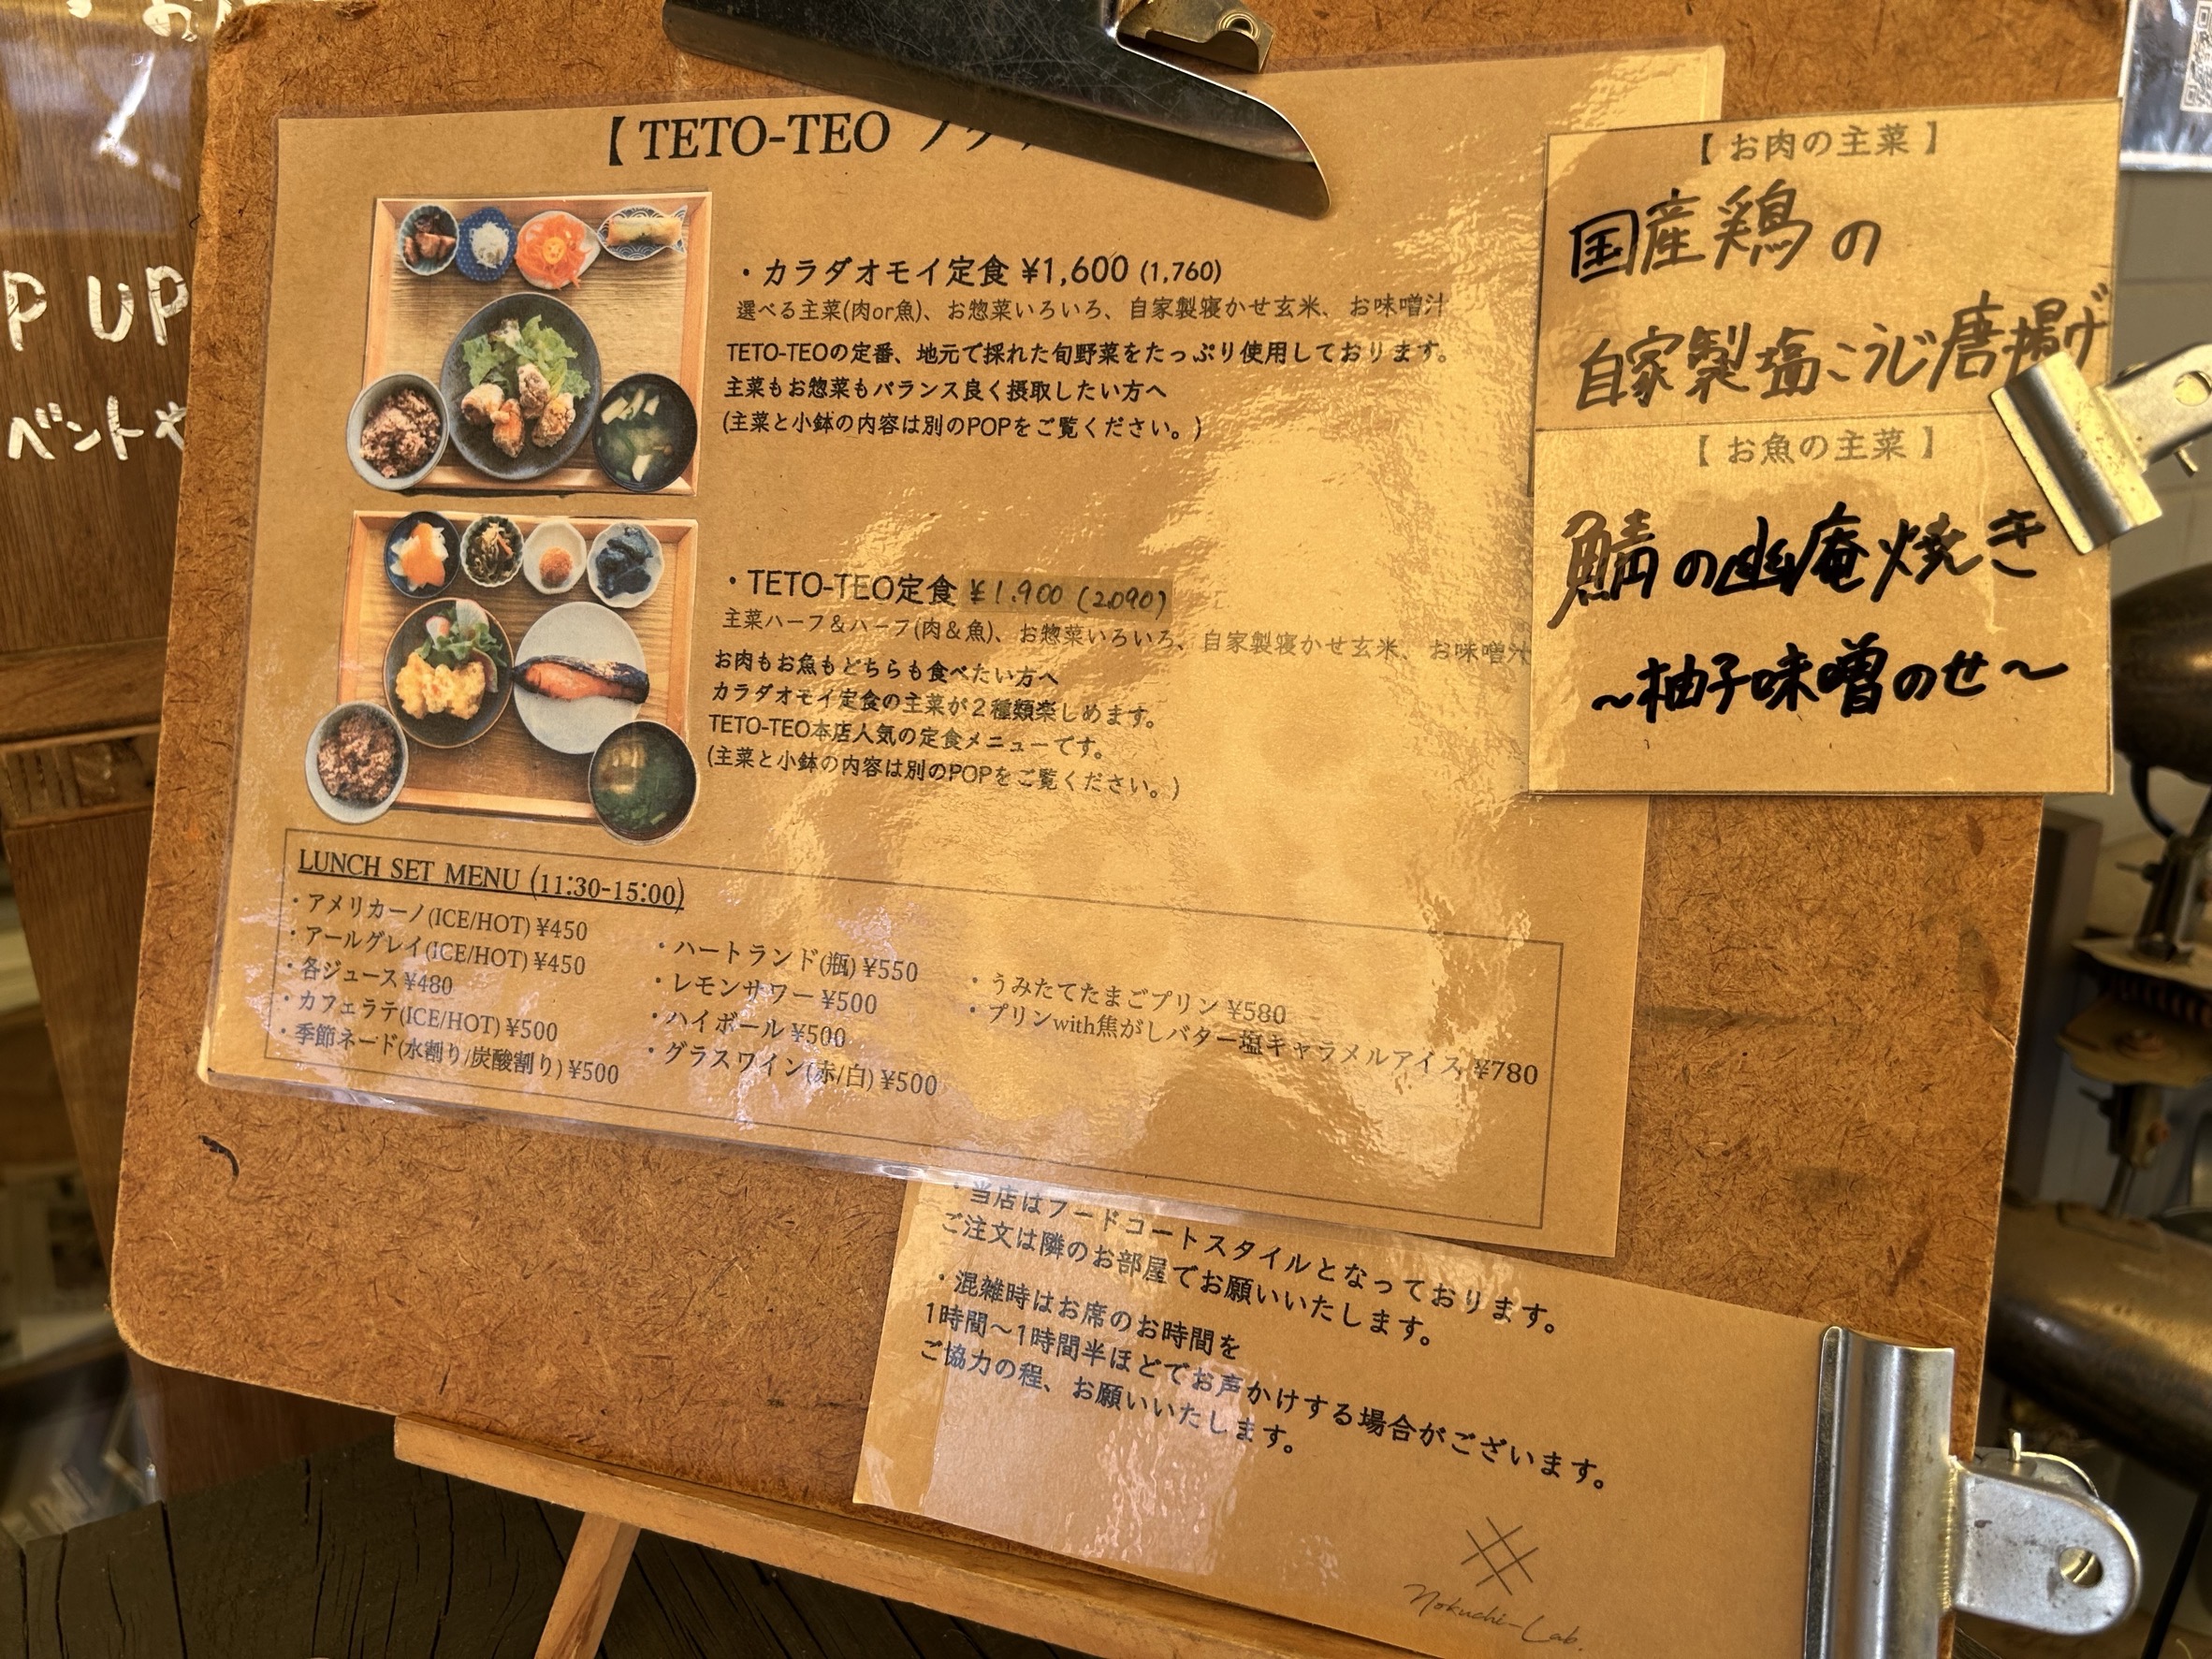 P UP
ベントや
【 TETO-TEO
・カラダオモイ定食 ¥1,600 (1,760)
選べる主菜(肉or魚)、お惣菜いろいろ、自家製寝かせ玄米、お味噌汁
TETO-TEOの定番、地元で採れた旬野菜をたっぷり使用しております。
主菜もお惣菜もバランス良く摂取したい方へ
(主菜と小鉢の内容は別のPOPをご覧ください。)
・TETO-TEO定食 ¥1.900 (2.090)
主菜ハーフ&ハーフ(肉&魚)、お惣菜いろいろ、自家製寝かせ玄米、お味噌汁
お肉もお魚もどちらも食べたい方へ
カラダオモイ定食の主菜が2種類楽しめます。
TETO-TEO本店人気の定食メニューです。
(主菜と小鉢の内容は別のPOPをご覧ください。)
LUNCH SET MENU (11:30-15:00)
・アメリカーノ(ICE/HOT) ¥450
・アールグレイ(ICE/HOT) ¥450
・各ジュース ¥480
・カフェラテ(ICE/HOT) ¥500
・季節ネード(水割り/炭酸割り) ¥500
・ハートランド(瓶) ¥550
・レモンサワー ¥500
・ハイボール ¥500
・グラスワイン(赤/白) ¥500
・うみたてたまごプリン ¥580
・プリンwith焦がしバター塩キャラメルアイス ¥780
【 お肉の主菜 】
国産鶏の
自家製塩こうじ唐揚げ
【 お魚の主菜 】
鯖の幽庵焼き
〜柚子味噌のせ〜
・当店はフードコートスタイルとなっております。
ご注文は隣のお部屋でお願いいたします。
・混雑時はお席のお時間を
1時間〜1時間半ほどでお声かけする場合がございます。
ご協力の程、お願いいたします。
Nokuchi-Lab.